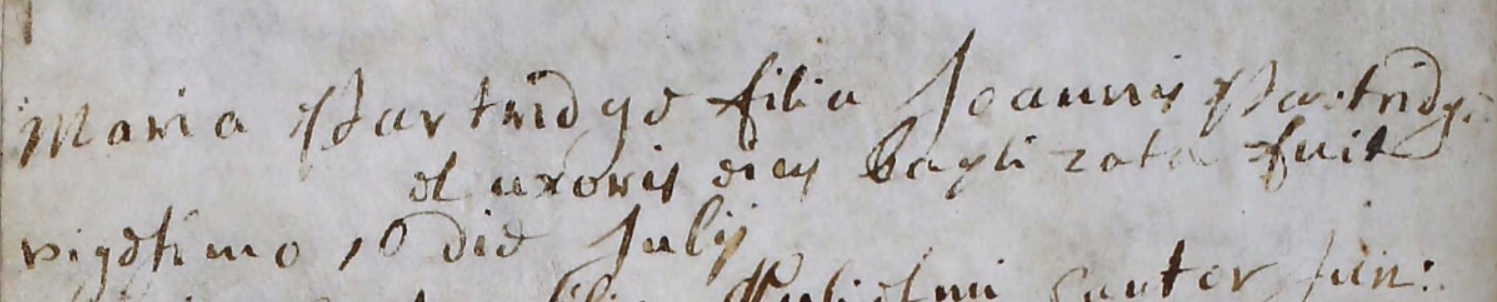 Maria Partridge filia Joannis Partridge
et uxoris eius baptizata fuit
vigesimo 10 die Julij
filia Gulielmi Carter jun: